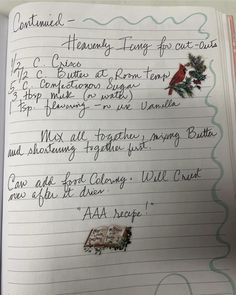 Continued -
Heavenly Icing for cut-outs
1/2 C. Crisco
1/2 C Butter at Room Temp
5 C Confectioners Sugar
3 tbsp milk (or water)
1 tsp. flavoring - or use Vanilla
Mix all together, mixing Butter
and shortening together first.
Can add food Coloring. Will Crust
over after it dries
"AAA recipe!"